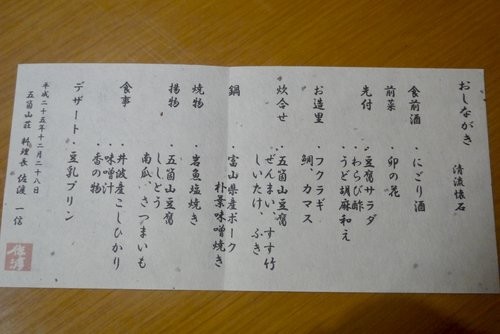 おしながき　清流懐石
食前酒・にごり酒
前菜・卯の花
先付・豆腐サラダ
・わらび酢
・うど胡麻和え
お造里・フクラギ
・鯛、カマス
炊合せ・五箇山豆腐
・ぜんまい、すす竹
しいたけ、ふき
鍋・富山県産ポーク
朴葉味噌焼き
焼物・岩魚塩焼き
揚物・五箇山豆腐
・ししとう
・南瓜、さつまいも
食事・丹波産こしひかり
・味噌汁
・香の物
デザート・豆乳プリン
平成二十五年十二月二十八日
五箇山荘 料理長 佐渡 一信